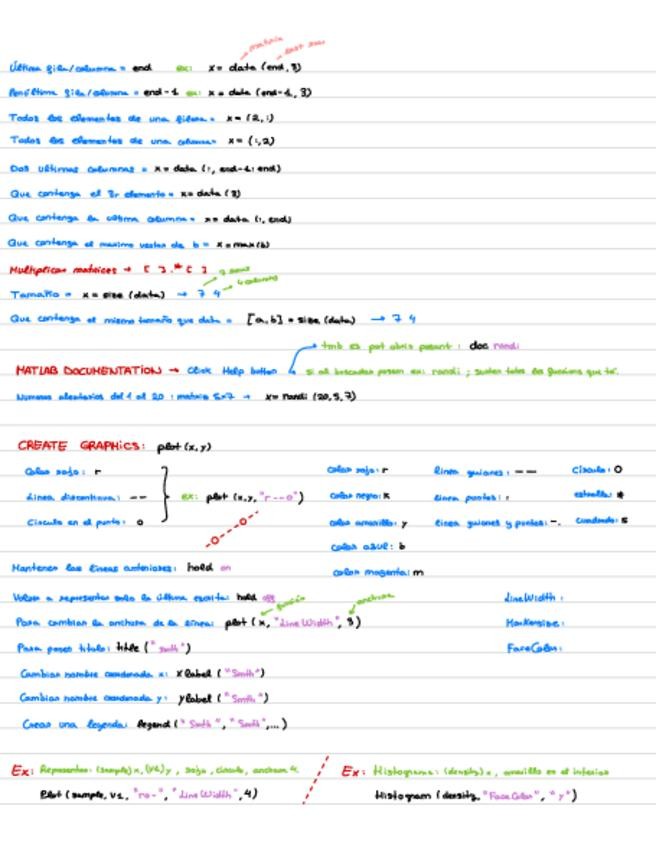 matrix last row
Última fila/columna = end ex: x = data (end, 3)
Penúltima fila/columna = end-1 ex: x = data (end-1, 3)
Todos los elementos de una fila = x = (2,:)
Todos los elementos de una columna = x = (:,2)
Dos ultimas columnas = x = data (:, end-1:end)
Que contenga el 3r elemento = x = data (3)
Que contenga la última columna = x = data (:, end)
Que contenga el maximo vector de b = x = max(b)
Multiplicar matrices → [ ] .* [ ]
7 rows
4 columns
Tamaño = x = size (data) → 7 4
Que contenga el mismo tamaño que data = [a,b] = size (data) → 7 4
tmb es pot obrir posant : doc randi
MATLAB DOCUMENTATION → Click Help button si al buscador posem ex: randi ; surten totes les funcions que té.
Numeros aleatorios del 1 al 20 : matriz 5x7 → x = randi (20,5,7)
CREATE GRAPHICS: plot (x,y)
Color rojo: r color rojo: r linea guiones: -- Circulo: o
Linea discontinua: -- ex: plot (x,y,"r--o") color negro: k linea puntos: : estrella: *
Circulo en el punto: o color amarillo: y linea guiones y puntos: -. cuadrado: s
color azul: b
Mantener las lineas anteriores: hold on color magenta: m
Volver a representar solo la última escrita: hold off LineWidth :
anchura
Para cambiar la anchura de la linea: plot (x, "LineWidth", 3) MarkerSize:
Para poner titulo: title ("Smth") FaceColor:
Cambiar nombre coordenada x: xlabel ("Smth")
Cambiar nombre coordenada y: ylabel ("Smth")
Crear una legenda: legend ("Smth", "Smth",...)
Ex: Representar: (sample) x, (v1) y, rojo, circulo, anchura 4. Ex: Histograma: (density) x, amarillo en el interior
Plot (sample, v1, "ro-", "LineWidth", 4) Histogram (density, "FaceColor", "y")